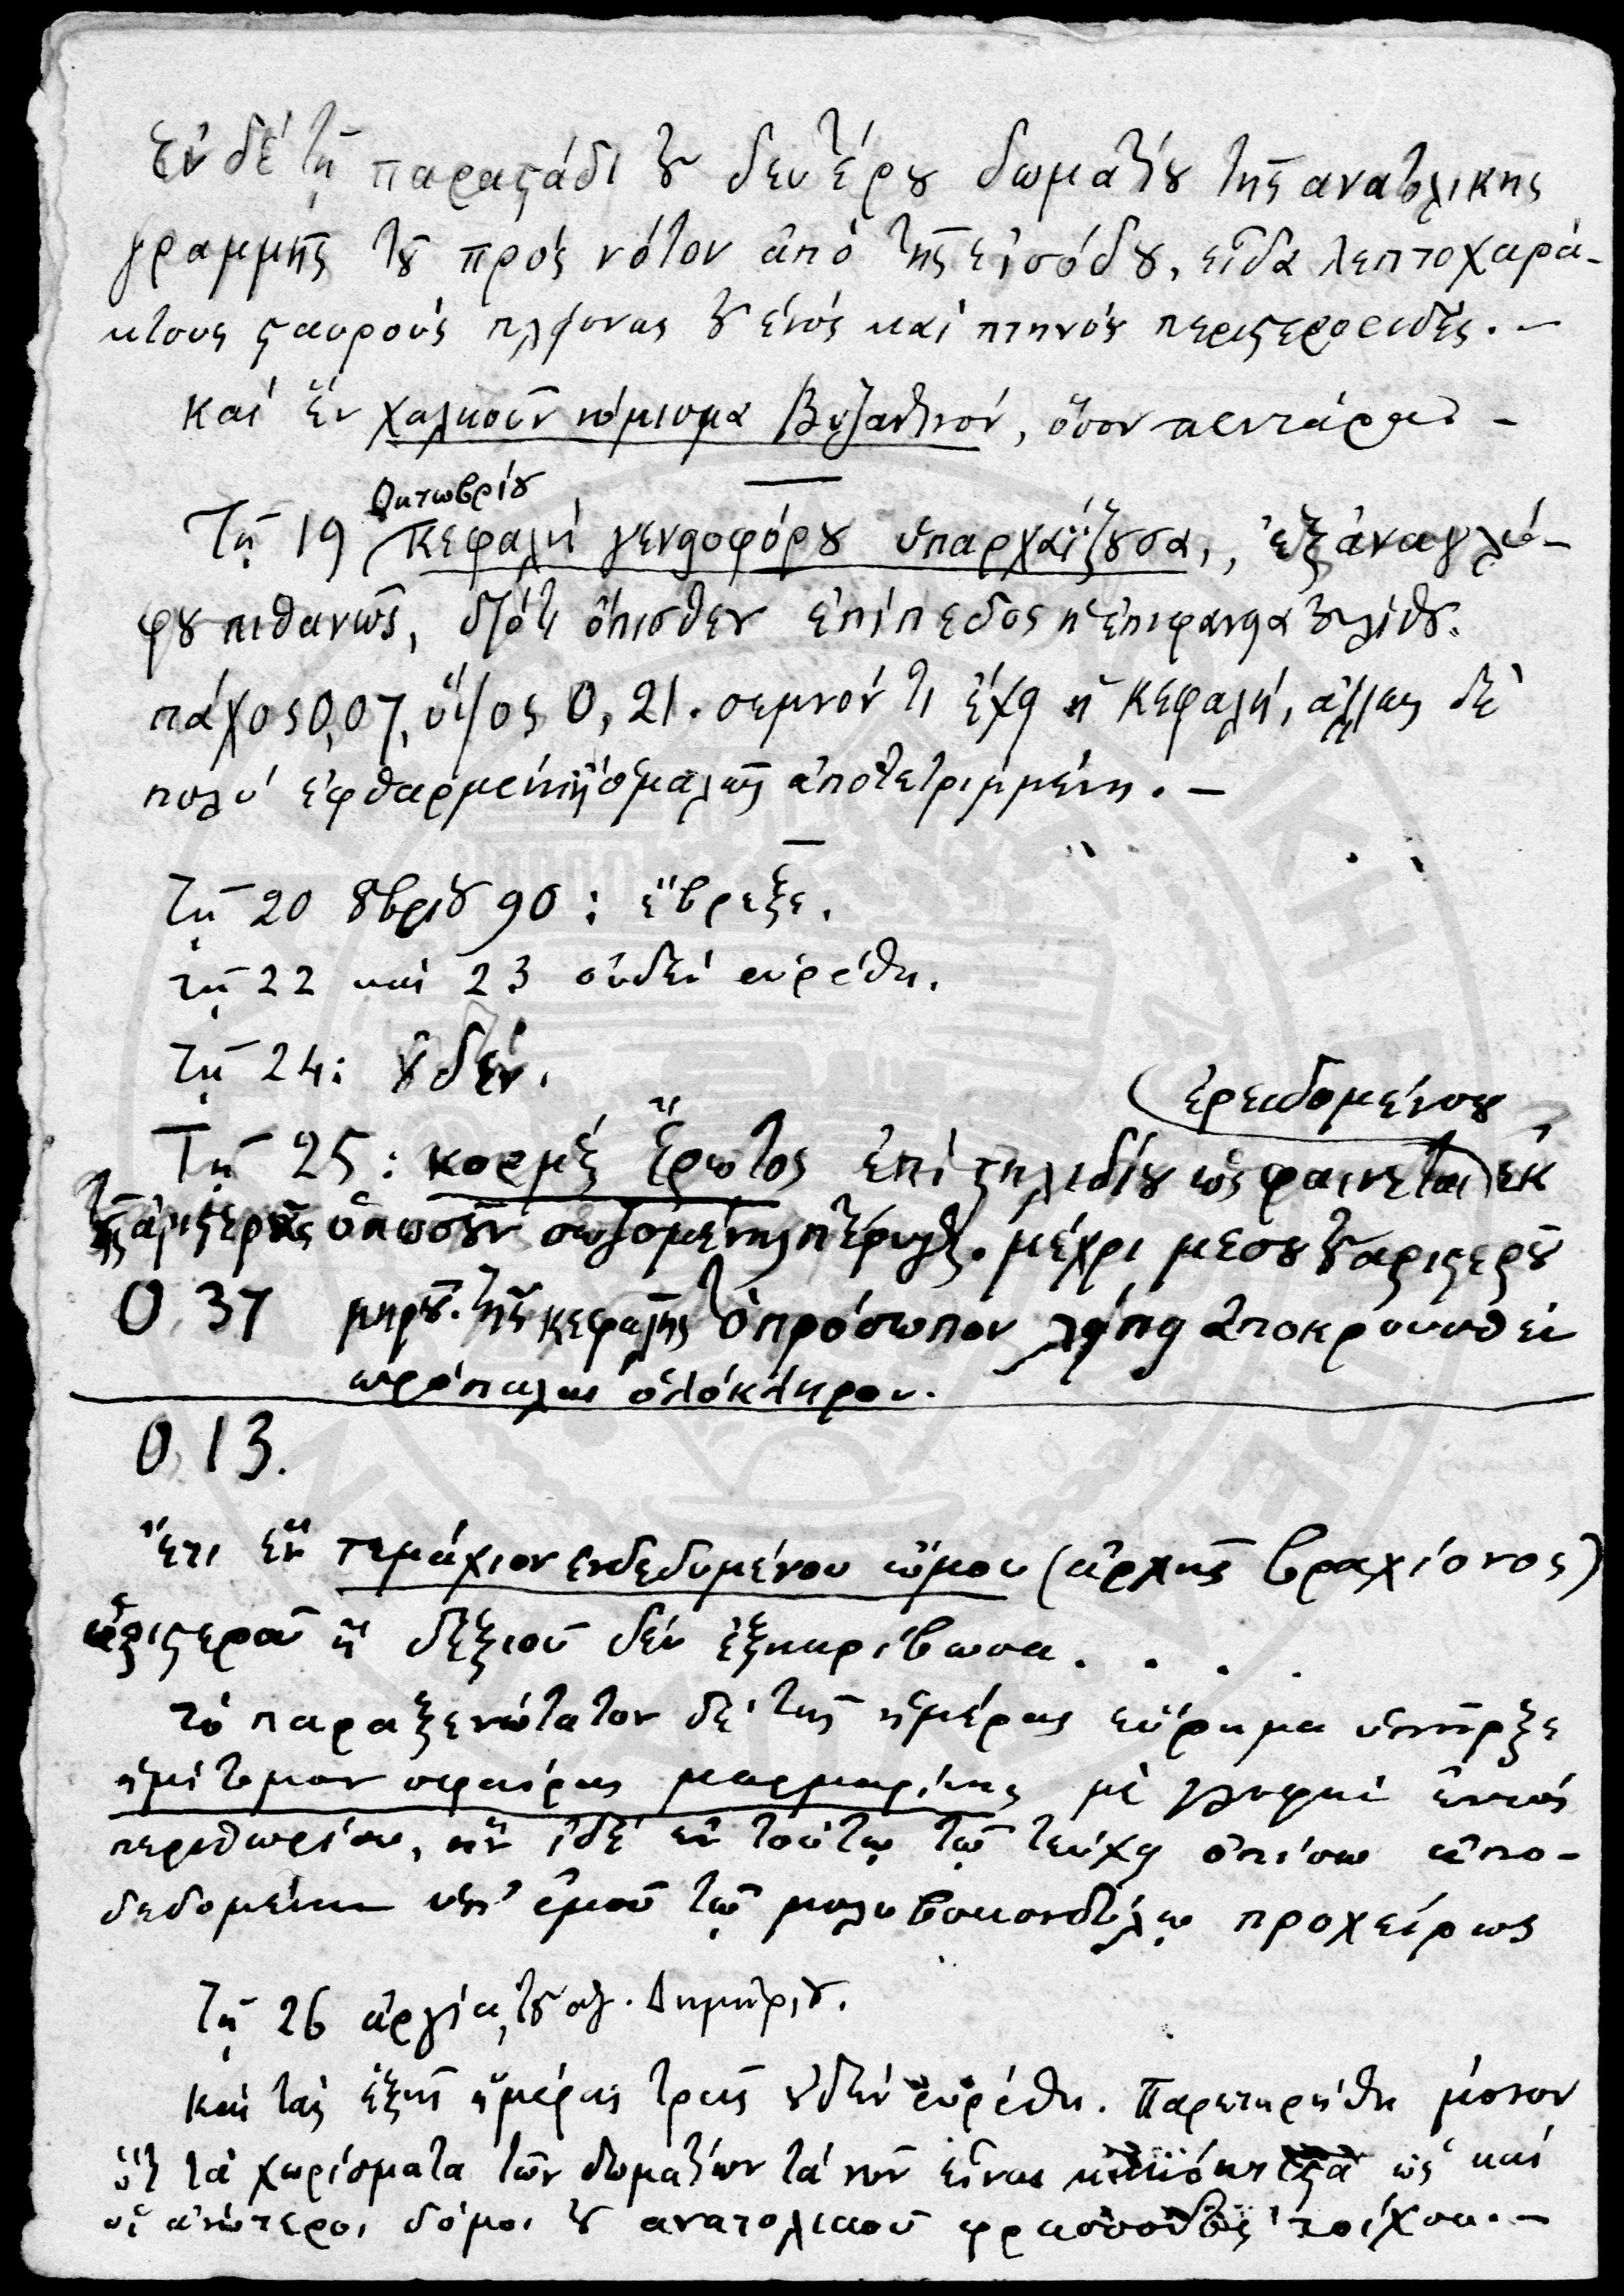 Ἐν δὲ τῇ παραστάδι τοῦ δευτέρου δωματίου τῆς ανατολικῆς
γραμμῆς τοῦ πρὸς νότον ἀπὸ τῆς εἰσόδου, εἶδα λεπτοχαρά-
κτους σταυροὺς πλησίον τοῦ ἑνὸς καὶ πτηνοῦ περιστεροειδές. –
Καὶ ἓν χαλκοῦν νόμισμα Βυζαντινόν, ὅσον πεντάρα –
Ὀκτωβρίου
Τῇ 19 Κεφαλὴ γενειοφόρου ὑπαρχαΐζουσα, ἐξ ἀναγλύ-
φου πιθανῶς, διότι ὄπισθεν ἐπίπεδος ἡ ἐπιφάνεια τοῦ λίθου.
πάχος 0,07, ὕψος 0,21. σεμνόν τι ἔχει ἡ κεφαλή, ἄλλως δὲ
πολὺ ἐφθαρμένη ὁμαλῶς ἀποτετριμμένη. –
Τῇ 20 8βρίου 90: ἔβρεξε.
τῇ 22 καὶ 23 οὐδὲν εὑρέθη.
τῇ 24: οὐδέν.
(ἐρειδομένου
Τῇ 25: κορμὸς Ἔρωτος ἐπὶ στηλιδίου ὡς φαίνεται) ἐκ
τῆς ἀριστερᾶς ὁπωσοῦν σωζομένης πτέρυγος. μέχρι μέσου τοῦ αριστεροῦ
0,37 μηροῦ. τῆς κεφαλῆς τὸ πρόσωπον λείπει ἀποκρουσθὲν
πρόπαλαι ὁλόκληρον.
0,13.
Ἔτι ἓν τεμάχιον ενδεδυμένου ὤμου (ἀρχῆς βραχίονος)
ἀριστεροῦ ἢ δεξιοῦ δὲν ἐξηκρίβωσα. . . .
Τὸ παραξενώτατον δὲ τῆς ἡμέρας εὕρημα ὑπῆρξε
ἡμίτομον σφαίρας μαρμαρίνης μὲ γλυφὴν ἐντὸς
περιθωρίου, ἣν ἰδὲ ἐν τούτῳ τῷ τεύχει ὀπίσω ἀπο-
δεδομένην ὑπ' ἐμοῦ τῷ μολυβδοκονδύλῳ προχείρως
Τῇ 26 ἀργία, τοῦ ἁγ. Δημητρίου.
καὶ τὰς ἑξῆς ἡμέρας τρεῖς οὐδὲν εὑρέθη. Παρετηρήθη μόνον
ὅτι τὰ χωρίσματα τῶν δωματίων τὰ νῦν εἶναι ὡς καὶ
οἱ ἀνώτεροι δόμοι τοῦ ανατολικοῦ τοίχου. –